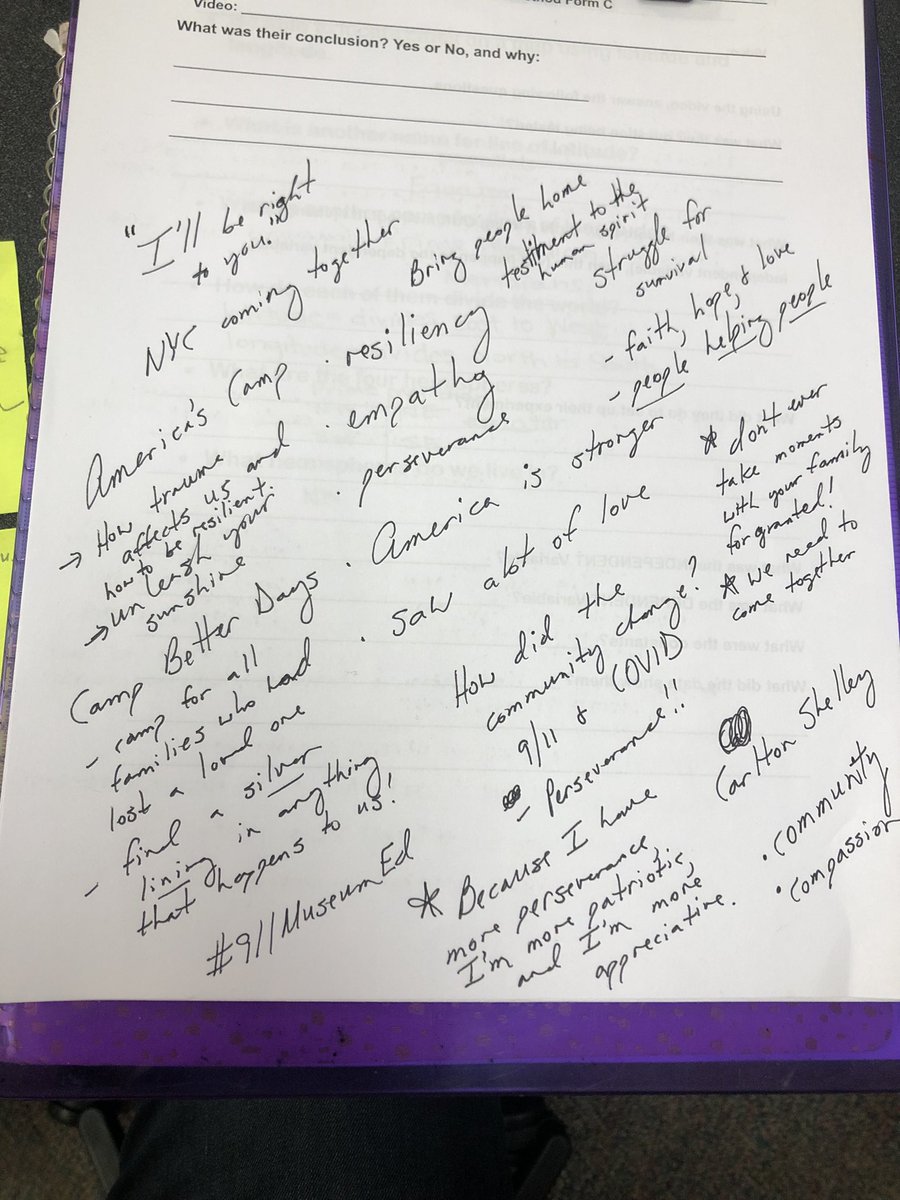 Video:
Form C
What was their conclusion? Yes or No, and why:
"I'll be right
to you."
NYC coming together
Bring people home
testiment to the
human spirit
struggle for
survival
- faith, hope, & love
- people helping people
America's Camp
→ How trauma
affects us and
how to be resilient.
→ unleash your
sunshine
· resiliency
· empathy
· perseverance
· America is stronger
· saw a lot of love
* don't ever
take moments
with your family
for granted!
* we need to
come together
Camp Better Days
- camp for all
families who had
lost a loved one
- find a silver
lining in anything
that happens to us!
#911MuseumEd
How did the
community change?
9/11 & COVID
- Perseverance!!
* Because I have
more perseverance,
I'm more patriotic,
and I'm more
appreciative.
Carlton Shelley
· community
· compassion